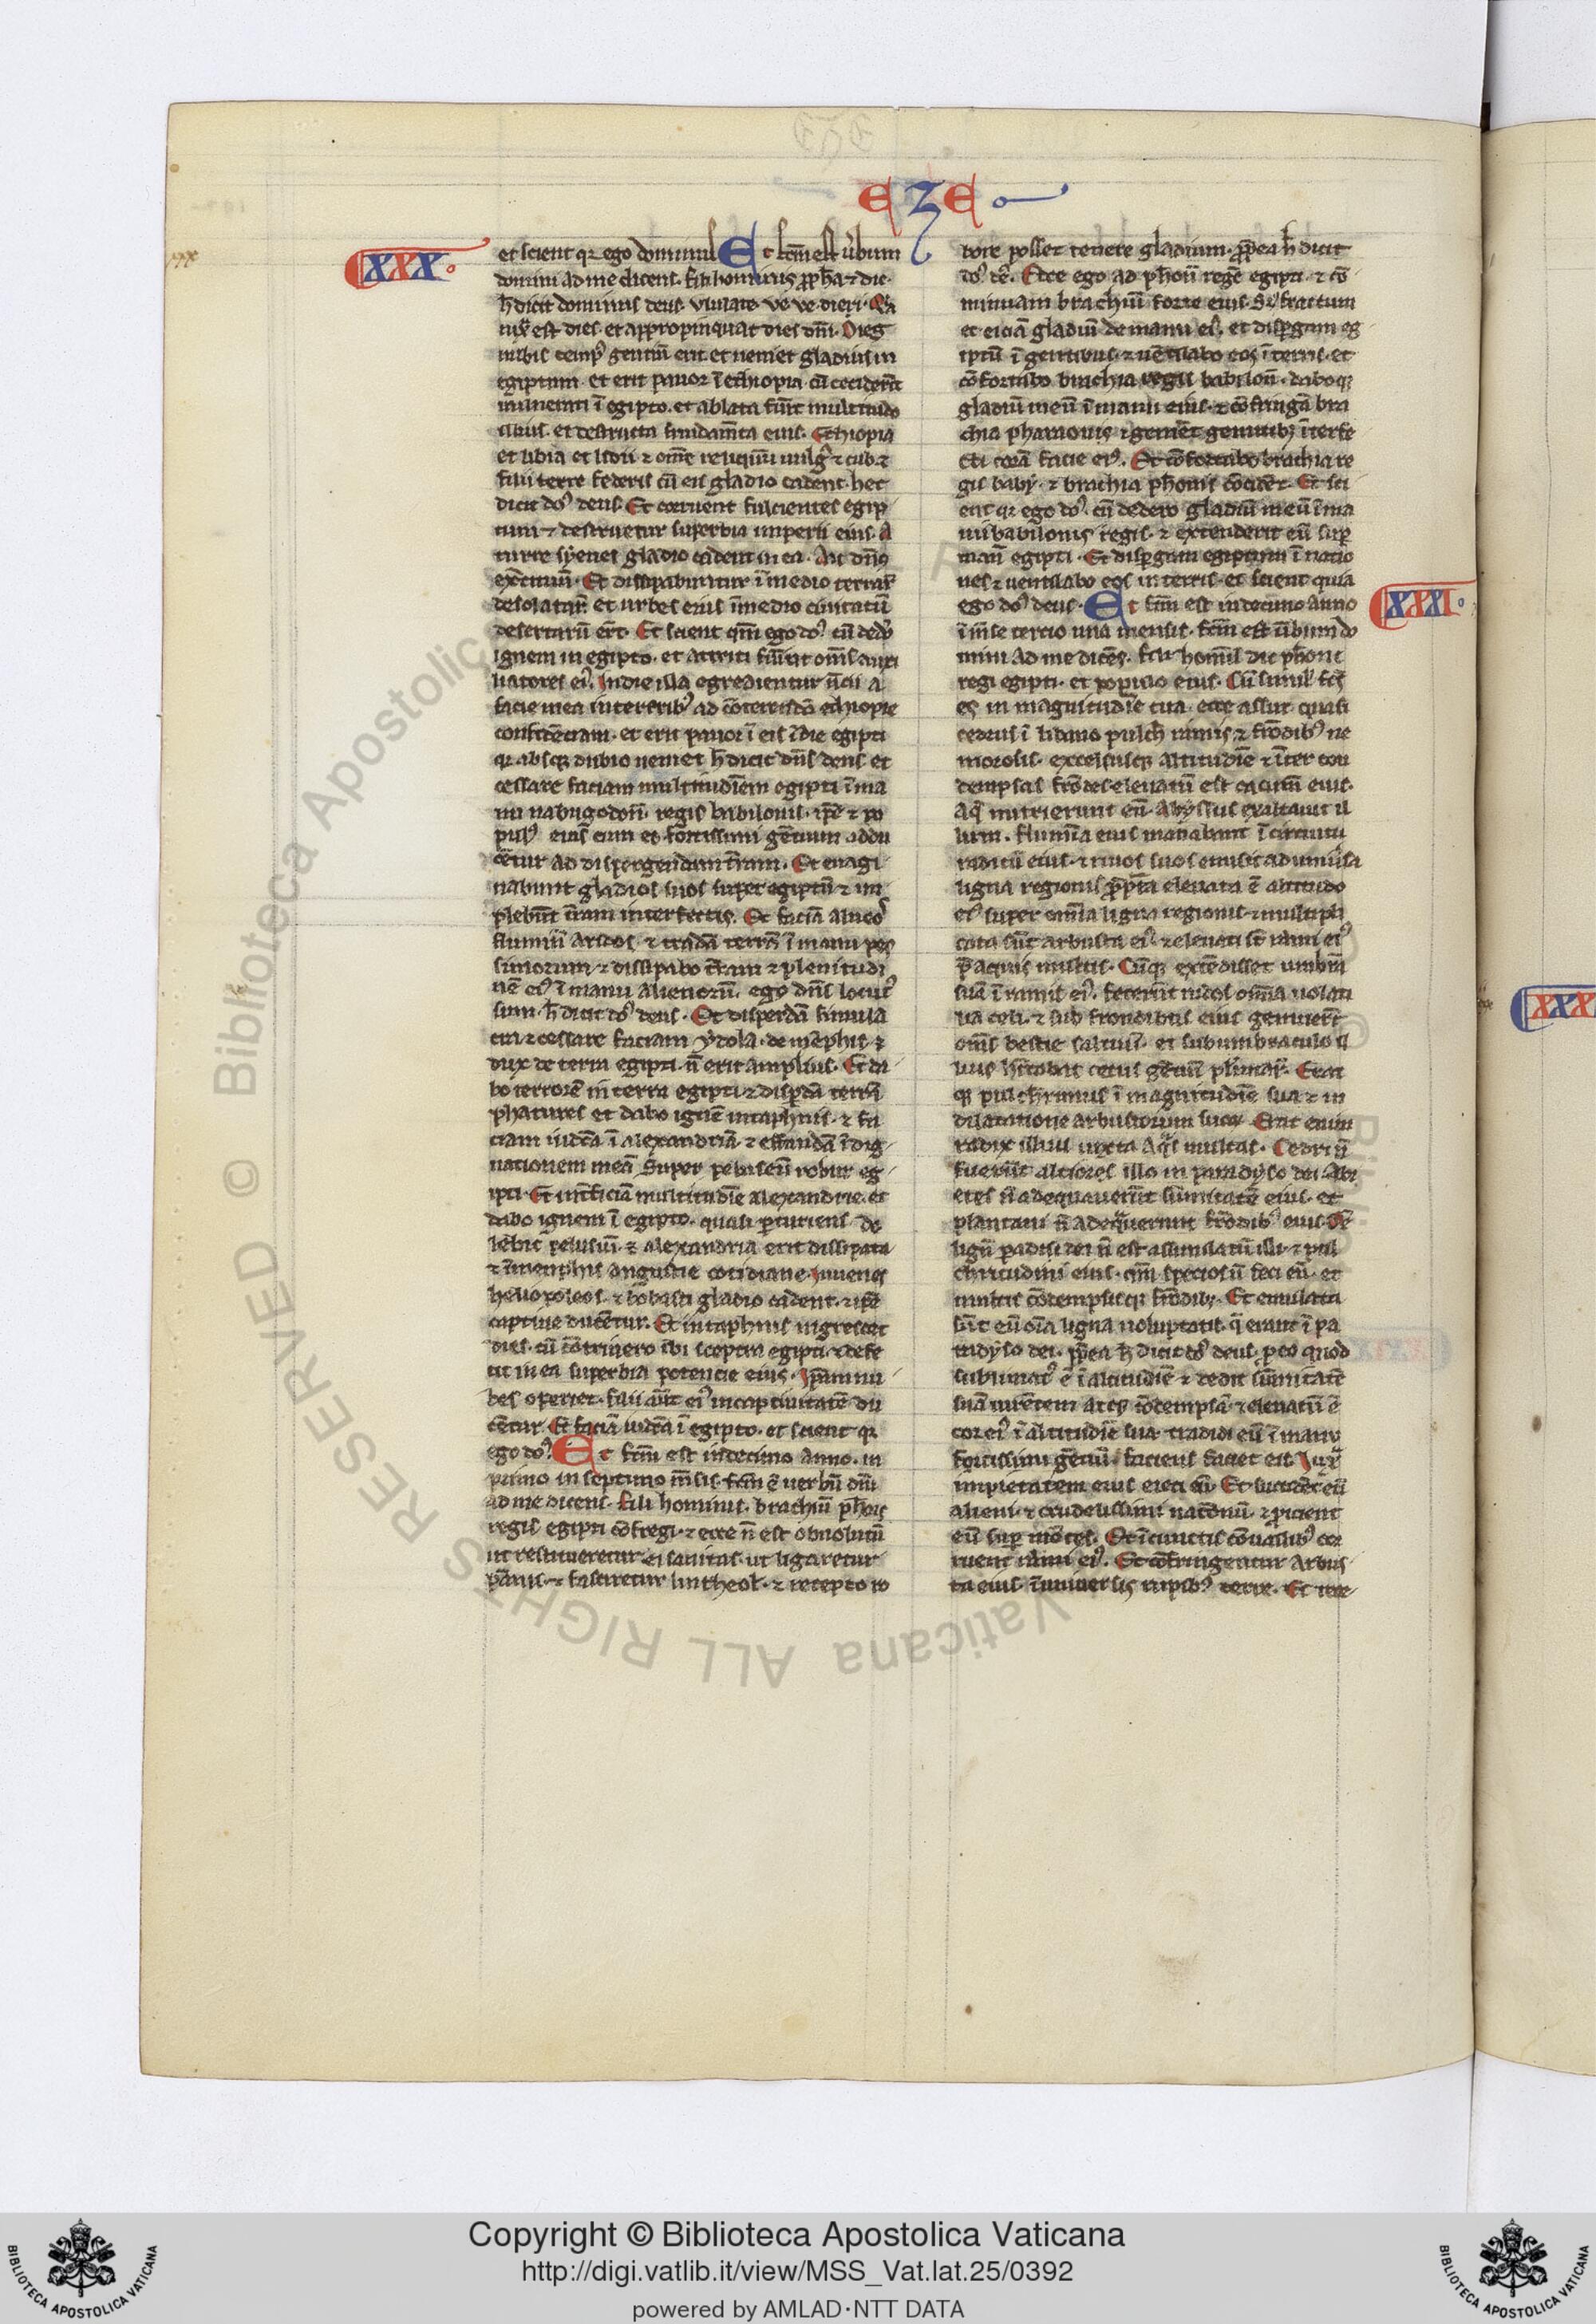 EZE
XXX
et scient qz ego dominus Et fcm est ubum
domini ad me dicens. fili hominis ppha et dic.
h dicit dominus deus. Ululate. ve ve. diei. Qa
iux est dies. et appropinquat dies dni. Dies
nubis. temp gentiu erit et ueniet gladius in
egiptum. et erit pauor i ethiopia. cu ceciderit
uulnerati i egipto. et ablata fuit multitudo
illius. et destructa fundamta eius. Ethiopia
et libia et lidii et ome reliquum uulg et cub et
filii terre federis cu eis gladio cadent. hec
dicit do deus. Et corruent fulcientes egip
tum et destruetur superbia imperii eius. A
turre syenes gladio cadent in ea. Ait dns
exercituu. Et dissipabuntur i medio terrar
desolatar. et urbes eius i medio ciuitatu
desertaru ert. Et scient qm ego do. cu dedo
ignem in egipto. et attriti fuint oms auxi
liatores ei. In die illa egredientur ncii a
facie mea in trierib ad coterenda ethiopie
confidetiam. et erit pauor i eis i die egipti
qz absqz dubio ueniet h dicit dns deus et
cessare faciam multitudiem egipti i ma
nu nabugodon. regis babilonis. ipe et po
pul eius cum eo fortissimi getium addu
cetur ad dispergendam tram. Et euagi
nabunt gladios suos super egiptu et im
plebut tram interfectis. Et facia alueo
fluminu aridos. et trada terra i manu pes
simorum et dissipabo tram et plenitudi
ne ei i manu alienoru. ego dns locut
sum. h dicit do deus. Et disperda simula
cra et cessare faciam ydola. de mephis. et
dux de terra egipti n erit amplius. Et da
bo terrore in terra egipti. et dispda terra
phatures et dabo igne in taphnis. et fa
ciam iudica i alexandria. et effunda i dig
nationem mea super pelusiu robur eg
ipti. Et inticia multitudie alexandrie. et
dabo ignem i egipto. quasi pturiens do
lebit pelusiu. et alexandria erit dissipata
et i memphis angustie cotidiane. Iuuenes
heliopoleos. et bobasti gladio cadent. et ipe
captiue ducetur. Et in taphnis nigrescet
dies. cu cotriuero ibi sceptra egipti. et defe
cit in ea superbia potencie eius. Ipam nu
bes operiet. filii aut ei in captiuitate du
cetur. Et facia iudica i egipto. et scient qz
ego do. Et fcm est in decimo anno. in
primo in septimo mesis. fcm e uerbu dni
ad me dicens. fili hominis. brachiu phois
regis egipti cofregi. et ecce n est obuolutu
ut restitueretur ei sanitas. ut ligaretur
panis. et fasciretur lintheol. et recepto ro
bore posset tenere gladium. ppea h dicit
do de. Ecce ego ad phou rege egipti. et co
minuam brachiu forte eius. s fractum
et eicia gladiu de manu ei. et dispgam eg
iptu i gentibus. et uetilabo eos i terris. et
cofortabo brachia regis babilon. daboqz
gladiu meu i manu eius. et cofringa bra
chia pharaonis et gement gemitibz iterfe
cti cora facie ei. Et cofortabo brachia re
gis baby. et brachia phonis cocidet. Et sci
ent qz ego do. cu dedero gladiu meu i ma
nu babilonis regis. et extenderit eu sup
terram egipti. Et dispgam egiptum i natio
nes et uentilabo eos in terris. et scient quia
ego do deus. Et fcm est in decimo anno
XXXI
i mse tercio una mensis. fcm est ubum do
mini ad me dices. fili hominis dic phoni
regi egipti. et populo eius. Cui simil fcs
es in magnitudie tua. ecce assur quasi
cedrus i libano pulch ramis et frodib ne
morosis. excelsusqz altitudie et inter con
densas frodes eleuatu est cacum eius.
Aq nutrierunt eu. Abyssus exaltauit il
lum. flumia eius manabant i circuitu
radicu eius. et riuos suos emisit ad uniusa
ligna regionis. ppta eleuata e altitudo
ei super omia ligna regionis. et multipli
cata sut arbusta ei et eleuati st rami ei
p aquis multis. Cuqz extedisset umbra
sua i ramis ei. fecerut nidos omia uolati
lia celi. et sub frondibus eius genuert
oms bestie saltuu. et sub umbraculo il
lius hitabat cetus getiu plimar. Erat
qz pulcherrimus i magnitudie sua et in
dilatatione arbustorum suor. Erat enim
radix illius iuxta aqs multas. Cedri n
fuerut altiores illo in paradyso dei. Abi
etes n adequauerut sumitate eius. et
platani n adequerunt frodib eius. Oe
lignu paradisi dei n est assimilatu illi. et pul
chritudini eius. qm speciosu feci eu. et
multis codempsisqz frodibz. Et emulata
sut eu oia ligna uoluptatis. q erant i pa
radyso dei. ppea h dicit do deus. p eo quod
sublimat e i altitudie et dedit sumitate
sua uiretem atqz codempsa. et eleuatu e
cor ei i altitudie sua. tradidi eu i manu
fortissimi getiu. faciens faciet ei. Iux
impietatem eius eieci eu. Et succidet eu
alieni. et crudelissimi nationu. et picient
eu sup motes. Et i cunctis couallib cor
ruent rami ei. Et cofringentur arbus
ta eius i uniuersis rupib terre. Et rece
XXX
Copyright © Biblioteca Apostolica Vaticana
http://digi.vatlib.it/view/MSS_Vat.lat.25/0392
powered by AMLAD·NTT DATA
BIBLIOTECA APOSTOLICA VATICANA
BIBLIOTECA APOSTOLICA VATICANA
© Biblioteca Apostolica Vaticana ALL RIGHTS RESERVED